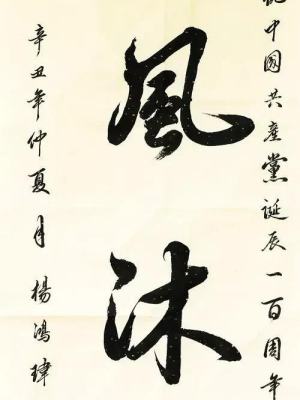 中國共產黨誕辰一百周年
風沐
辛丑年仲夏月楊鴻瑋